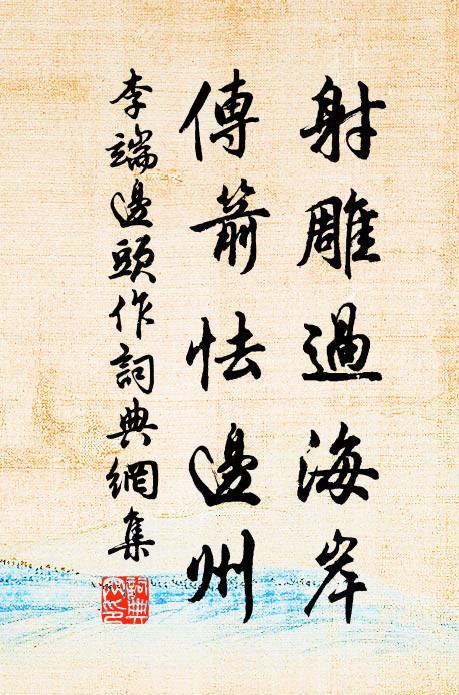 射雕過海岸
傳箭怯邊州
李端邊頭作詞典網集